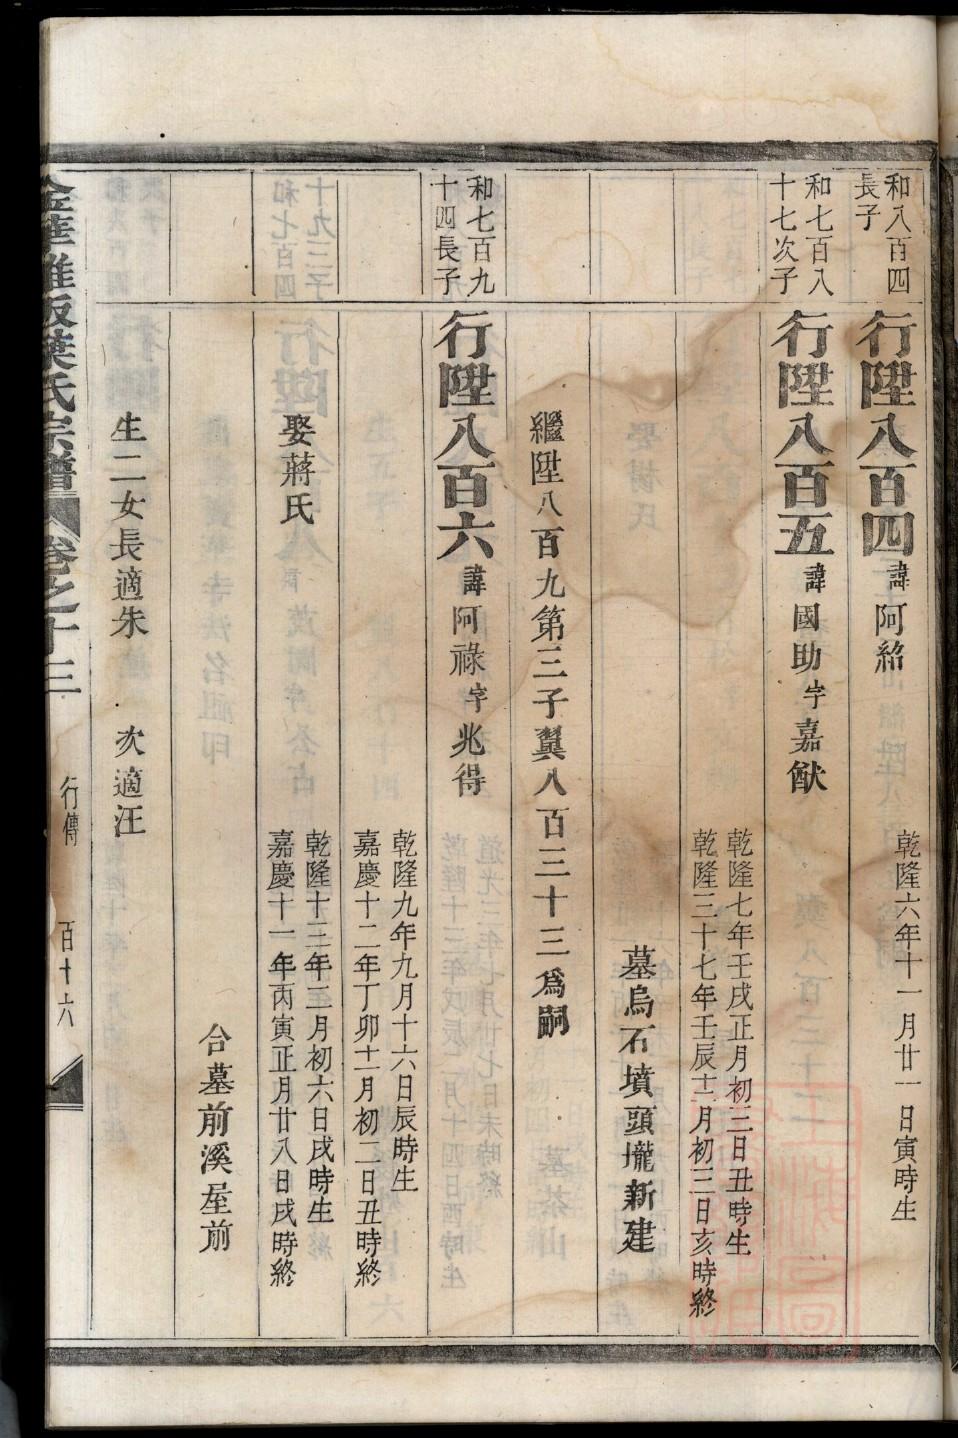 和八百四
長子
行陞八百四諱阿紹
乾隆六年十一月廿一日寅時生
和七百八
十七次子
行陞八百五諱國助字嘉猷
乾隆七年壬戌正月初三日丑時生
乾隆三十七年壬辰十二月初三日亥時終
墓烏石墳頭壠新建
繼陞八百九第三子翼八百三十三爲嗣
和七百九
十四長子
行陞八百六諱阿祿字兆得
乾隆九年九月十六日辰時生
嘉慶十二年丁卯十一月初二日丑時終
娶蔣氏
乾隆十三年三月初六日戌時生
嘉慶十一年丙寅正月廿八日戌時終
合墓前溪屋前
生二女長適朱 次適汪
葉氏宗譜 卷之十三 行傳 百十六